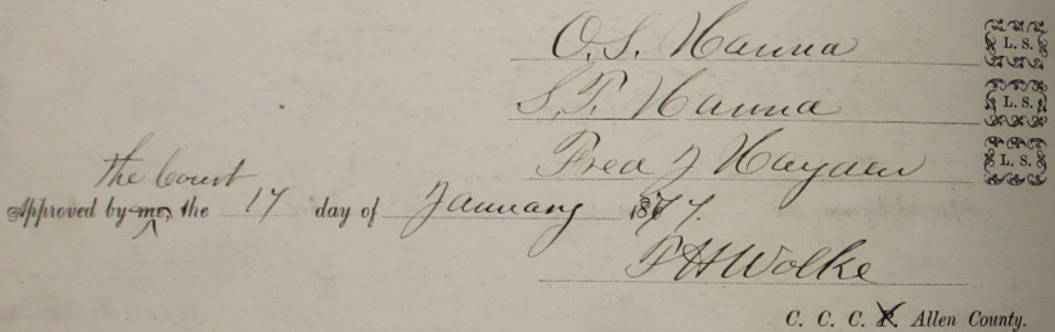 O. S. Hanna L. S.
S. T. Hanna L. S.
Fred J Hayden L. S.
the Court
Approved by me, the 17 day of January 1877.
F H Wolke
C. C. C. P. Allen County.